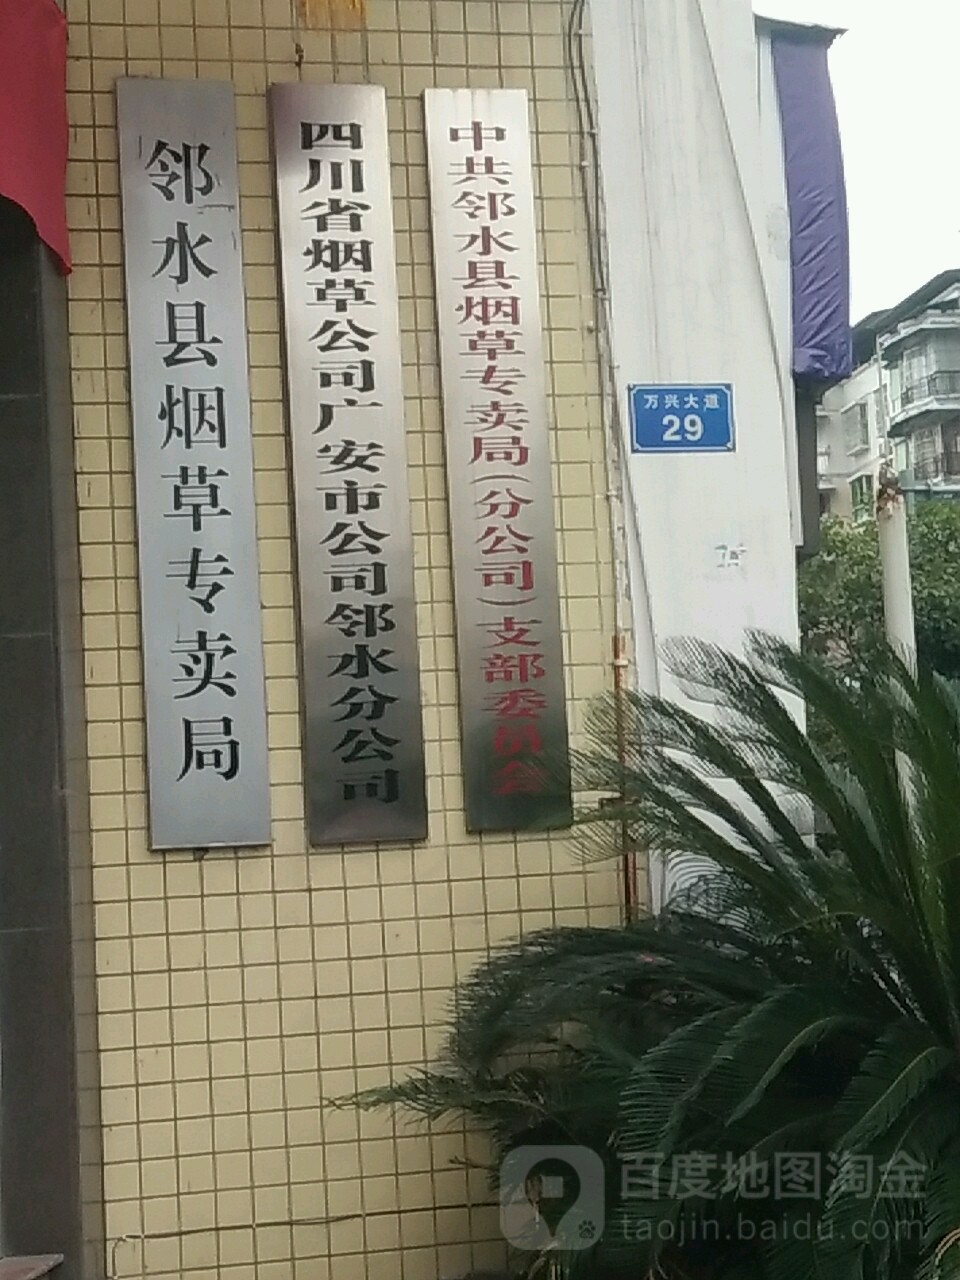 邻水县烟草专卖局
四川省烟草公司广安市公司邻水分公司
中共邻水县烟草专卖局(分公司)支部委员会
万兴大道
29
百度地图淘金
taojin.baidu.com